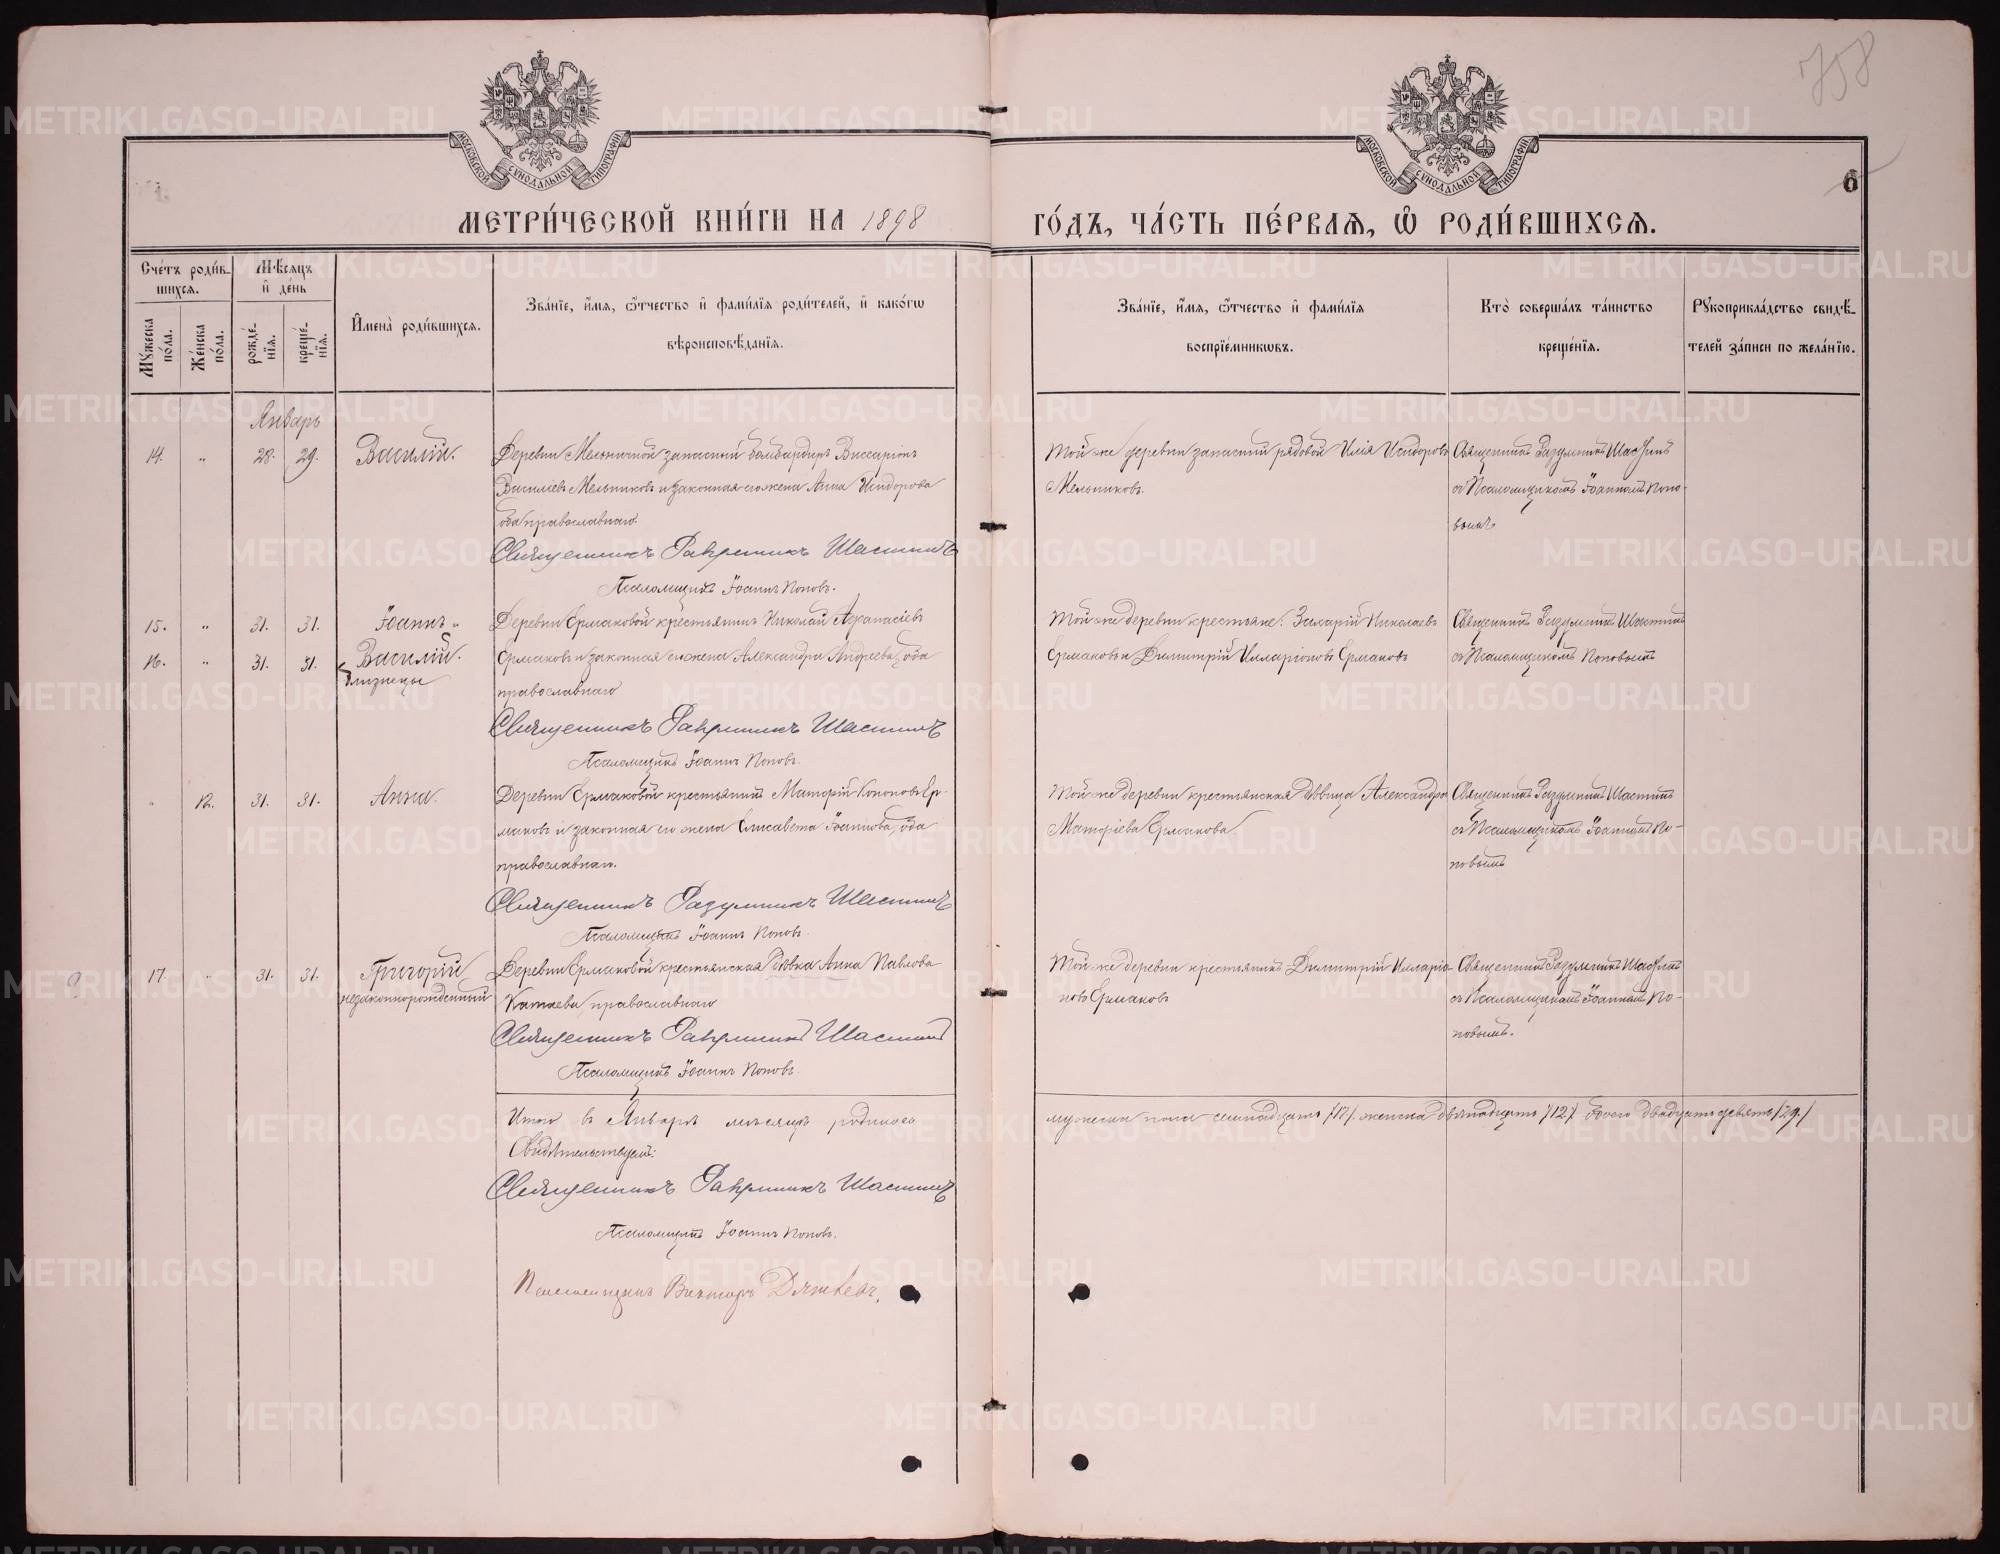 758
6
МОСКОВСКОЙ СѴНОДАЛЬНОЙ ТИПОГРАФІИ
МОСКОВСКОЙ СѴНОДАЛЬНОЙ ТИПОГРАФІИ
МЕТРИ́ЧЕСКОЙ КНИ́ГИ НА 1898 ГО́ДЪ, ЧА́СТЬ ПЕ́РВАѦ, Ѽ РОДИ́ВШИХСѦ.
Сче́тъ роди́вшихсѧ.
Мꙋ́жеска по́ла.
Же́нска по́ла.
Мѣ́сѧцъ и҆ де́нь
рожде́нїѧ.
креще́нїѧ.
И҆мена̀ роди́вшихсѧ.
Зва́нїе, и҆́мѧ, ѻ҆́тчество и҆ фами́лїѧ роди́телей, и҆ како́гѡ
вѣроисповѣ́данїѧ.
Зва́нїе, и҆́мѧ, ѻ҆́тчество и҆ фами́лїѧ
воспрїе́мникѡвъ.
Кто̀ соверша́лъ та́инство
креще́нїѧ.
Рꙋкоприкла́дство свидѣ́-
телей за́писи по жела́нїю.
Январь
14. „ 28. 29. Василій.
Деревни Мельничной запасный бомбардиръ Виссаріонъ
Василіевъ Мельниковъ и законная его жена Анна Исидорова
оба православнаго.
Священникъ Разумникъ Шастинъ
Псаломщикъ Іоаннъ Поповъ.
Той же деревни запасный рядовой Илія Исидоровъ
Мельниковъ.
Священникъ Разумникъ Шастинъ
съ Псаломщикомъ Іоанномъ Попо-
вымъ
15. „ 31. 31. Іоаннъ „
16. „ 31. 31. Василій.
близнецы
Деревни Ермаковой крестьянинъ Николай Афанасіевъ
Ермаковъ и законная его жена Александра Андреева, оба
православнаго
Священникъ Разумникъ Шастинъ
Псаломщикъ Іоаннъ Поповъ.
Той же деревни крестьяне: Николаевъ
Ермаковъ и Димитрій Илларіоновъ Ермаковъ
Священникъ Разумникъ Шастинъ
съ Псаломщикомъ Поповымъ
„ 12. 31. 31. Анна.
Деревни Ермаковой крестьянинъ Кононовъ Ер-
маковъ и законная его жена Елисавета Іоаннова, оба
православнаго.
Священникъ Разумникъ Шастинъ
Псаломщикъ Іоаннъ Поповъ.
Той же деревни крестьянская дѣвица Александра
Ермакова.
Священникъ Разумникъ Шастинъ
съ Псаломщикомъ Іоанномъ По-
повымъ
? 17. „ 31. 31. Григорій
незаконнорожденный
Деревни Ермаковой крестьянская дѣвка Анна Павлова
Катаева, православнаго
Священникъ Разумникъ Шастинъ
Псаломщикъ Іоаннъ Поповъ.
Той же деревни крестьянинъ Димитрій Илларіо-
новъ Ермаковъ
Священникъ Разумникъ Шастинъ
съ Псаломщикомъ Іоанномъ По-
повымъ.
Итого въ Январѣ мѣсяцѣ родилось мужеска пола семнадцать /17/. женска двѣнадцать /12/ обоего двадцать девять /29./
Свидѣтельствуемъ:
Священникъ Разумникъ Шастинъ
Псаломщикъ Іоаннъ Поповъ.
Псаломщикъ Викторъ
METRIKI.GASO-URAL.RU